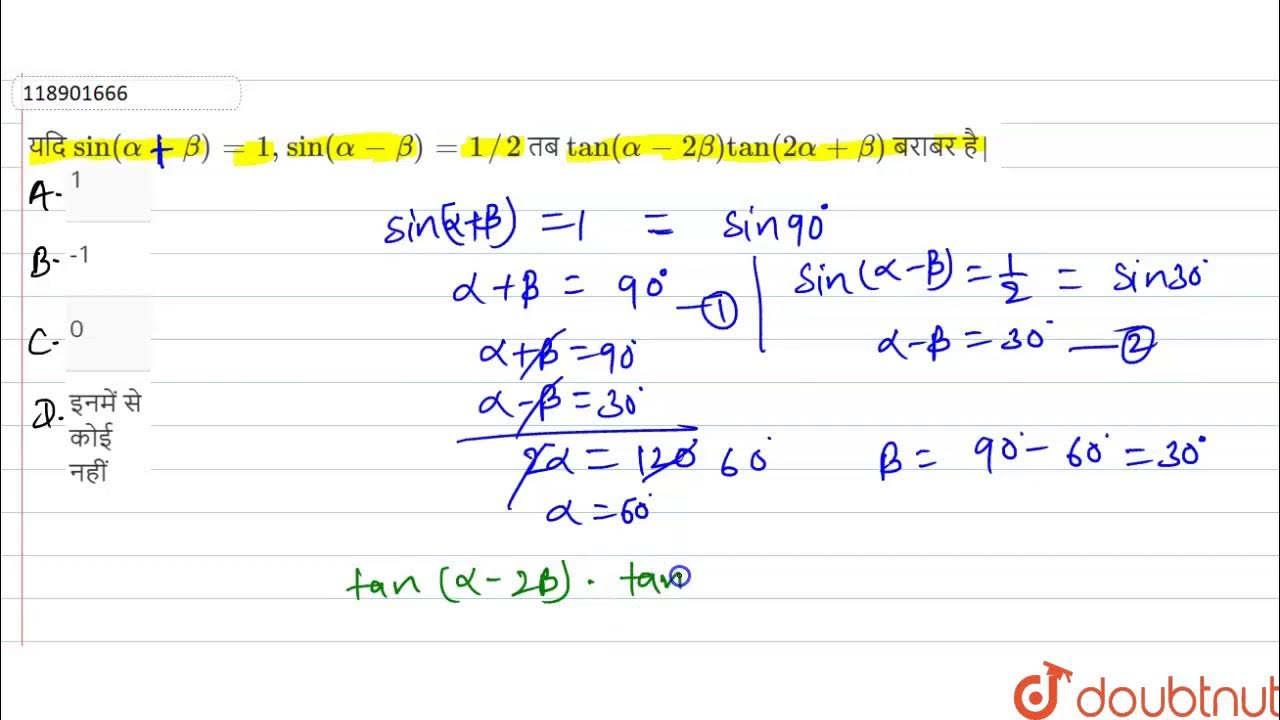 118901666
यदि sin(α + β) = 1, sin(α − β) = 1/2 तब tan(α − 2β)tan(2α + β) बराबर है|
A. 1
B. -1
C. 0
D. इनमें से
कोई
नहीं
sin(α+β) = 1 = sin 90°
α + β = 90° — ①
sin(α − β) = 1/2 = sin 30°
α − β = 30° — ②
α + β = 90°
α − β = 30°
2α = 120° 60°
α = 60°
β = 90° − 60° = 30°
tan (α − 2β) · tan
doubtnut